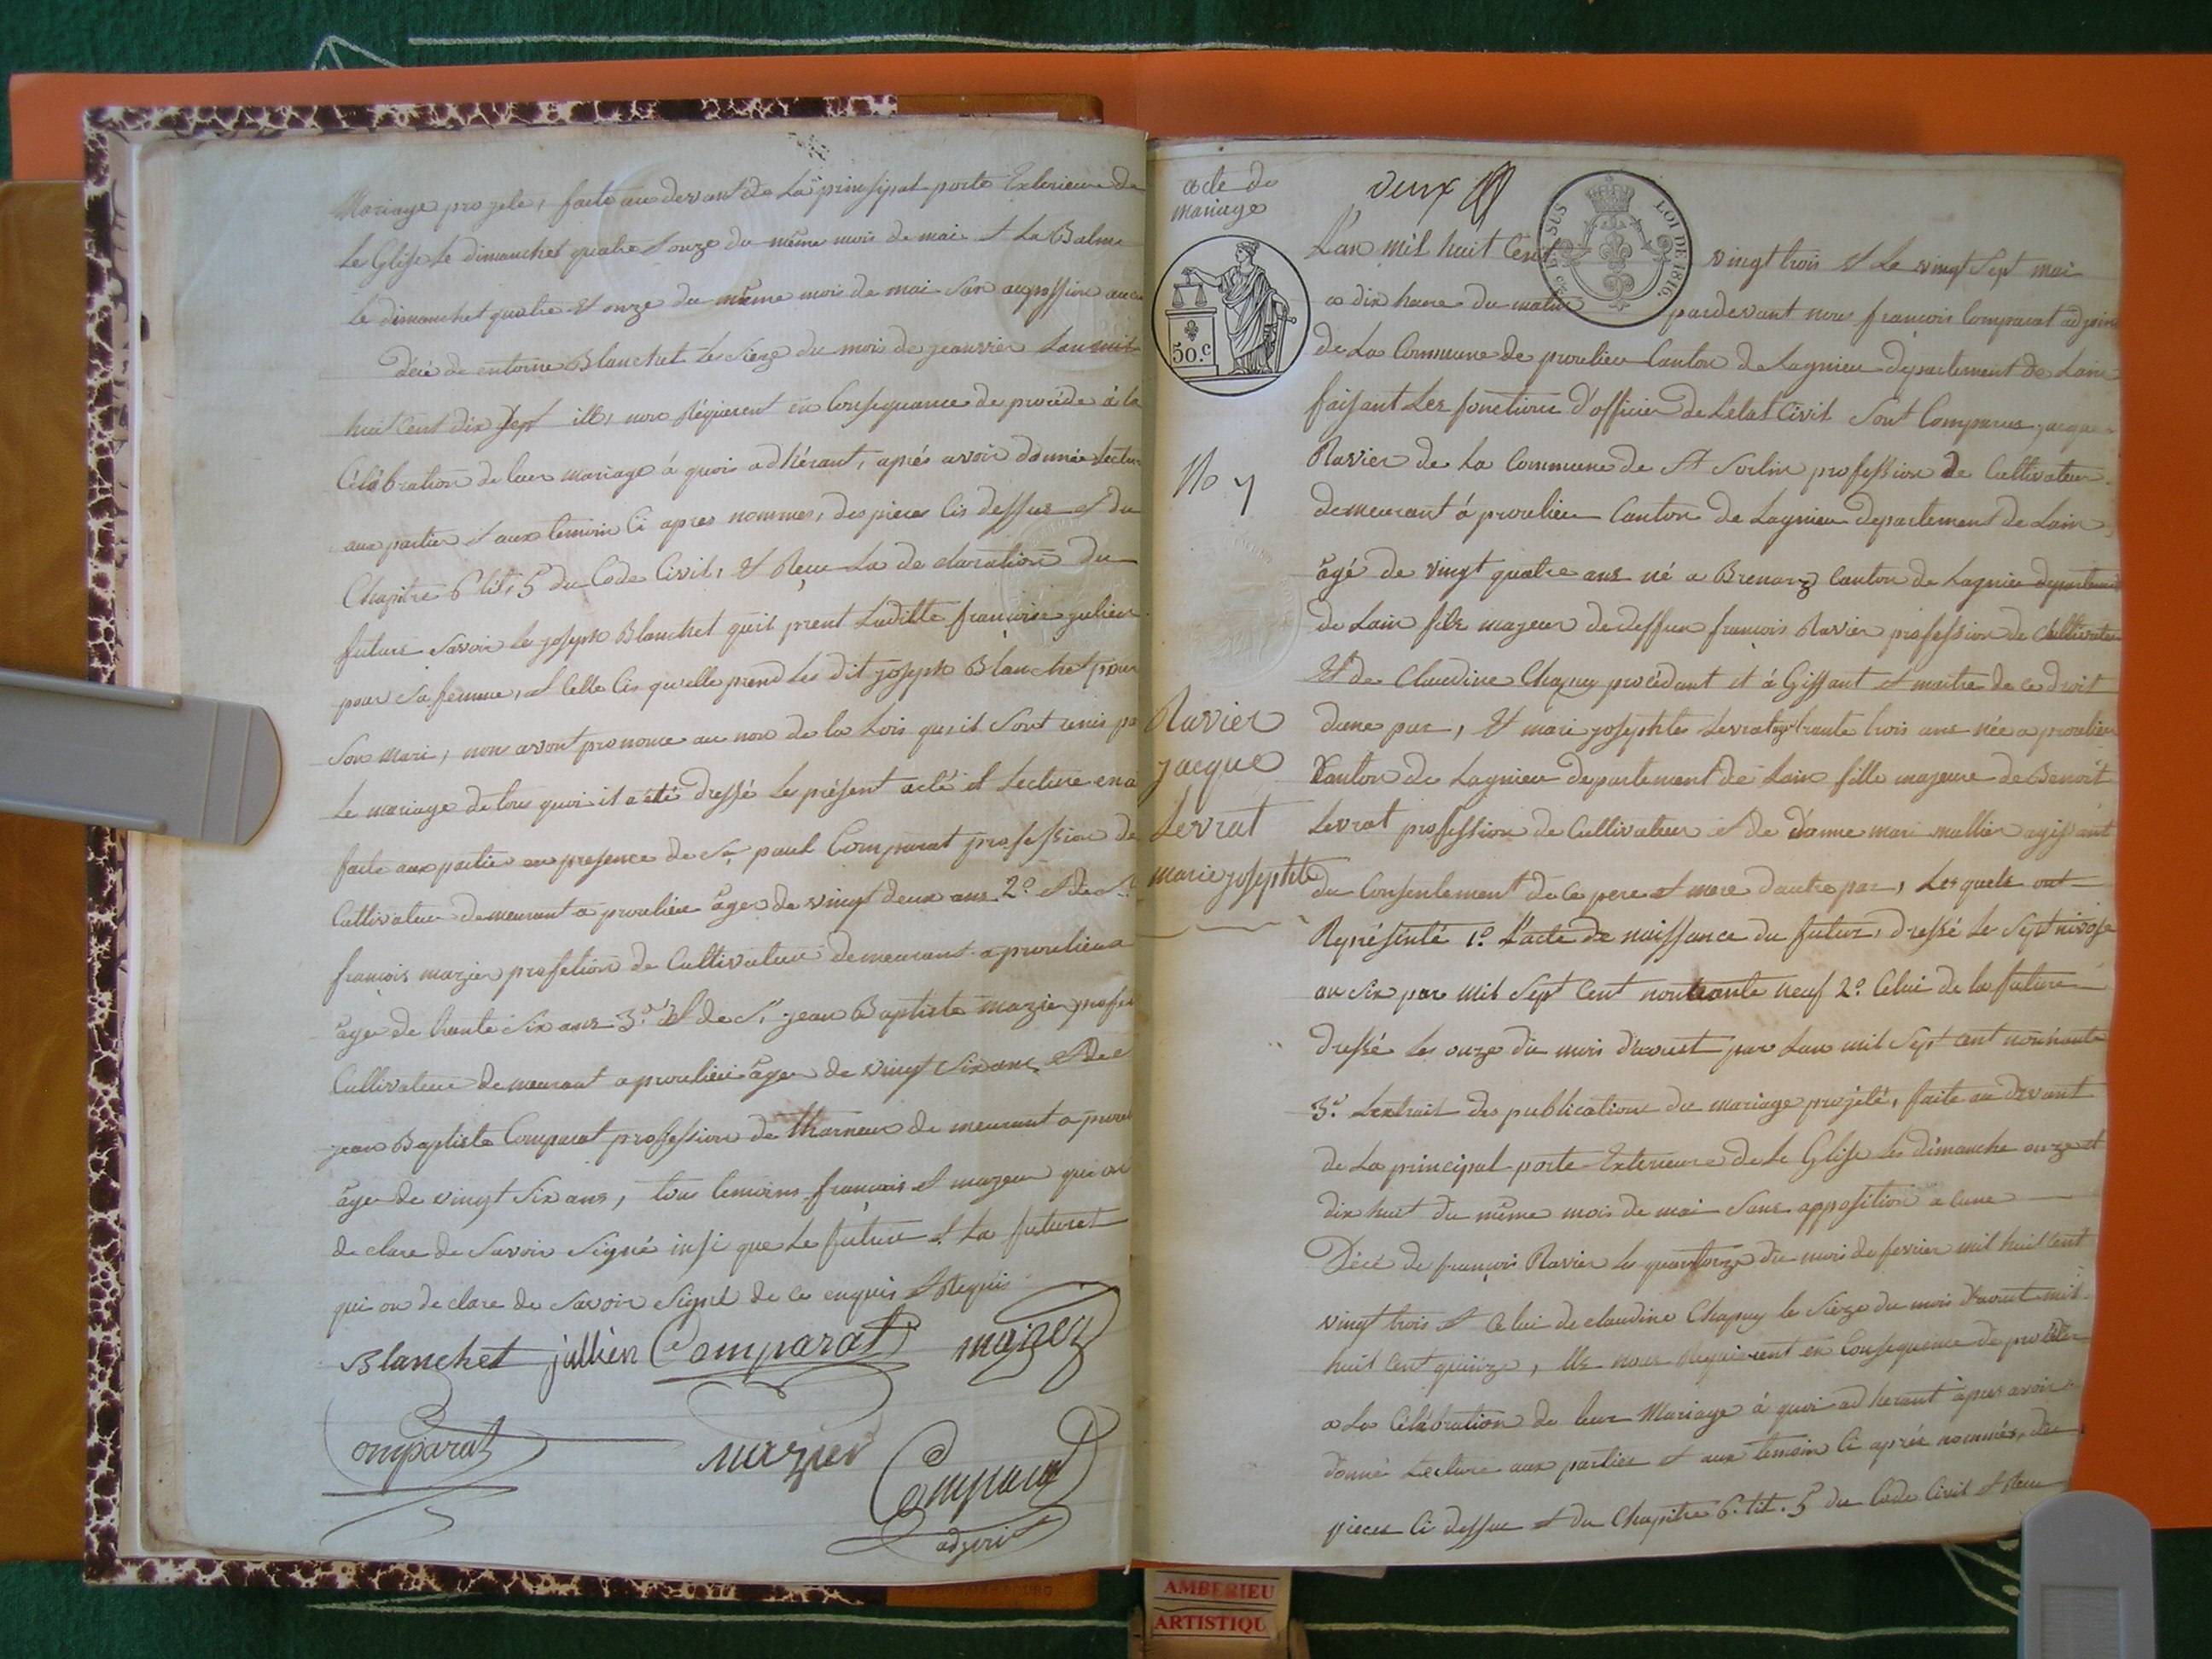 Mariage projete, faite au devant de La prinsipal porte Exterieure de
Le Glise Le dimanchet quatre & onze du même mois de mai & La Balme
Le dimanchet quatre & onze du même mois de mai San
déci de entoine Blanchet Le Sieze du mois de jeanvier Lan mil
huit Cent dix Sept ills, nous Réquierent en Consequance de procéde à la
Célébration de leur mariage à quoi adhérant, aprés avoir donné Lectur
aux partier & aux temoin Ci apres nommes, des pieces Cis dessus & du
Chapitre 6 tit, 5 du Code Civil, & Recu La de claration du
future Savoir le joseph Blanchet quil prent Laditte françoise julien
pour Sa femme, & Celle Cis quelle prend Les dit joseph Blanchet pour
Son Mari, nous avont prononce au nom de la Lois qu, il Sont unis pa
Le mariage de tous quoi il a été dressé Le présent acte & Lecture en a
faite aux partie en presence de Sr paul Comparat profession de
Cultivateur demeurant a proulieu âger de vingt deux ans 2º & de Sr
françois mazier profetion de Cultivateur demeurant a proulieu a
âger de trante Six ans 3º & de Sr jean Baptiste mazier profes
Cultivateur demeurant a proulieu âger de vingt Six ans & de
jean Baptiste Comparat profession de demeurant a proul
âger de vingt Six ans, tous temoins françois & mageur qui on
de clare de Savoir Signé insi que Le future & La futuret
qui on de clare de Savoir Signé de ce enquis & Requis
Blanchet jullien Comparat mazier
Comparat mazier Comparat
adjoint
acte de
mariage
50.c
No 7
Ravier
jacque
Levrat
marie josephte
deux
LOI DE 1816.
L'an mil huit Cent vingt trois & Le vingt Sept mai
a dix heure du matin pardevant nous françois Comparat adjoin
de La Commune de proulieu Canton de Lagnieu departement de Lain
faisant Les fonctions d'officier de Letat Civil Sont Comparus jacque
Ravier de La Commune de St Sorlin profession de Cultivateur
demeurant à proulieu Canton de Lagnieu departement de Lain,
âgé de vingt quatre ans né a Brenaz Canton de Lagnieu departement
de Lain fils majeur de deffun françois Ravier profession de Cultivateur
& de Claudine Chapuy procédant et à Gissant & maitre de ce droit
dune par, & mari josephte Levrat age trante trois ans née a proulieu
Canton de Lagnieu departement de Lain fille majeure de Benoit
Levrat profession de Cultivateur & de danne mari mallier agissant
du Consentement de Ce pere & mere dautre par, Les quels ont
Représenté 1º L'acte de naissance du futur, dressé Le Sept nivose
an Six par mil Sept Cent nontante neuf 2º Celui de la future
dressé Les onze du mois daoust par Lan mil Sept Cent nontante
3º Lextrait des publications du mariage projété, faite au devant
de La principal porte Exterieure de Le Glise Les dimanche onze et
dix huit du même mois de mai Sans apposition a cune
Déci de françois Ravier Les quartorze du mois de fevrier mil huit Cent
vingt trois & Celui de claudine Chapuy le Sieze du mois d'avout mil
huit Cent quinze, Ils nous Requierent en Consequence de procéder
a La Célébration de leur Mariage à quoi ad herant apres avoir
donné Lecture aux parties & aux temoin Ci aprés nommés, des
pieces Ci dessus & du Chapitre 6. tit. 5 du Code Civil & Recu
AMBERIEU
ARTISTIQU